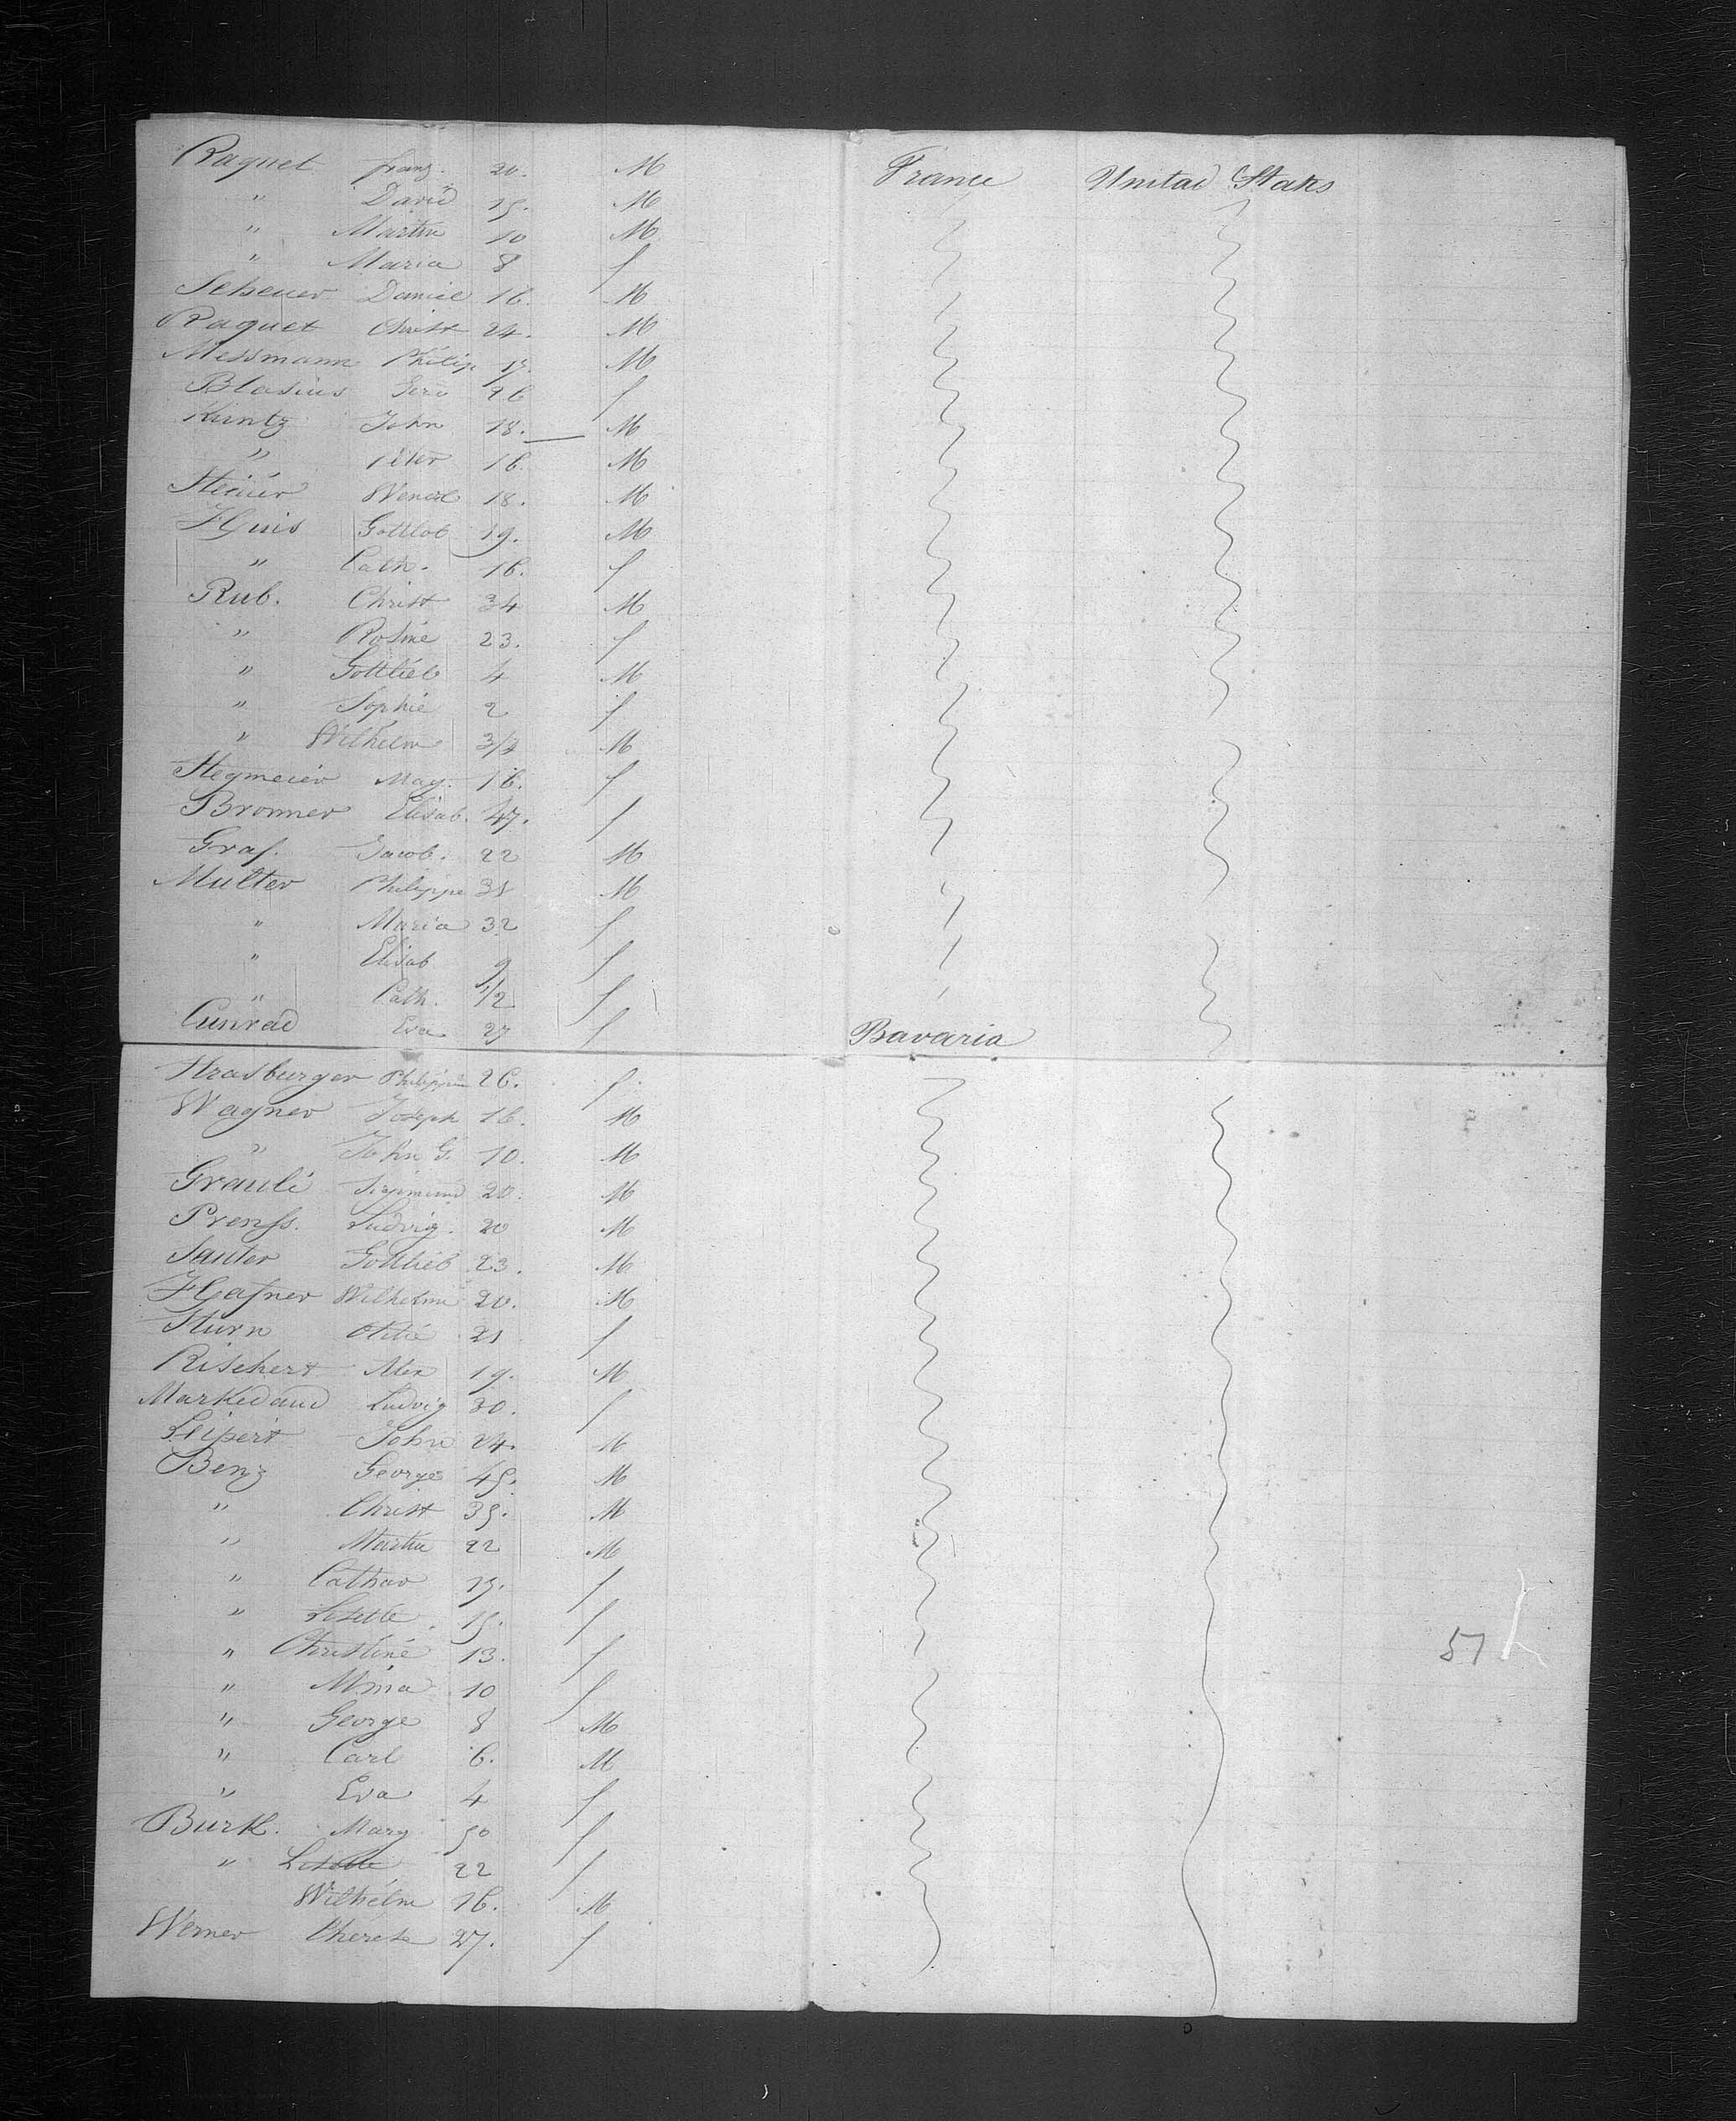 Raquet Franz. 20. M France United States
" David 15. M
" Martin 10 M
" Maria 8 f
Scheuer Daniel 16 M
Raquet Christ 24. M
Messmann Philip 17. M
Blasius 26 f
Kuntz John 18. M
" Peter 16. M
Steiner Wencel 18. M
Huis Gottlob 19. M
" Cath. 16. f
Rub. Christ 34 M
" Rosine 23. f
" Gottlieb 4 M
" Sophie 2 f
" Wilhelm 3/4 M
Stegmeier Mag. 16. f
Bronner Elisab. 47. f
Graf. Jacob. 22 M
Multer Philippe 38 M
" Maria 32 f
" Elisab 9 f
" Cath. 1/2 f
Cunrad Eva 27 f Bavaria
Strasburger Philippin 26. f.
Wagner Joseph 16. M
" John G. 10. M
Grauli Sigimund 20. M
Prenss. Ludvig. 20 M
Sauter Gottlieb 23. M
Hafner Wilhelm 20. M
Sturn Otitie 21 f
Rischert Alex 19. M
Markedaud Ludvig 30. f
Seipert John 24. M
Benz George 45. M
" Christ 35. M
" Martin 22 M
" Cathar 17. f
" Lisette 15. f
" Christine 13. f
" Mina 10 f
" George 8 M
" Carl 6. M
" Eva 4 f
Burk. Mary 50 f
" Lisette 22 f
Wilhelm 16. M
Werner Therese 27. f
51